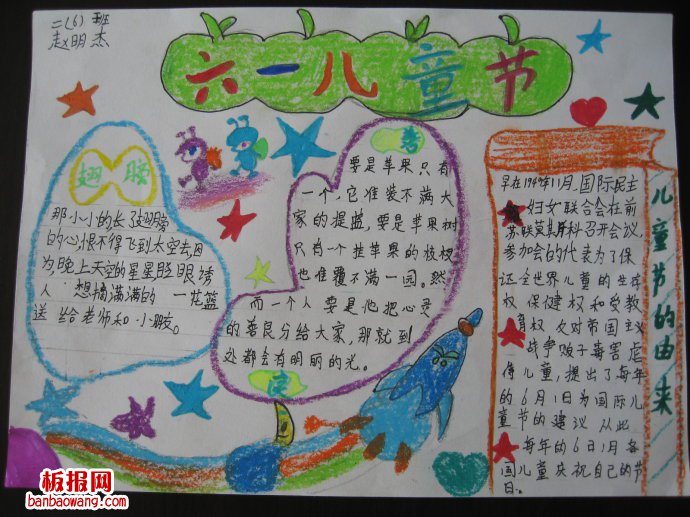 二(6) 班
赵明杰
六一儿童节
翅膀
那小小的长了翅膀
的心恨不得飞到太空去,因
为,晚上天空的星星眨眼诱
人 想摘满满的 一花篮
送 给老师和小朋友。
要是苹果只有
一个,它准装不满大
家的提蓝,要是苹果树
只有一个挂苹果的枝杈
也准覆不满一园。然
而一个人 要是他把心灵
的善良分给大家,那就到
处都会有明丽的光。
儿童节的由来
早在1949年11月,国际民主
妇女联合会在前
苏联莫斯科召开会议,
参加会的代表为了保
证全世界儿童的生存
权 保健权和受教
育权 反对帝国主义
战争贩子毒害虐
待儿童,提出了每年
的6月1日为国际儿
童节的建议 从此
每年的6月1日各
国儿童庆祝自己的节
日。
板报网
banbaowang.com